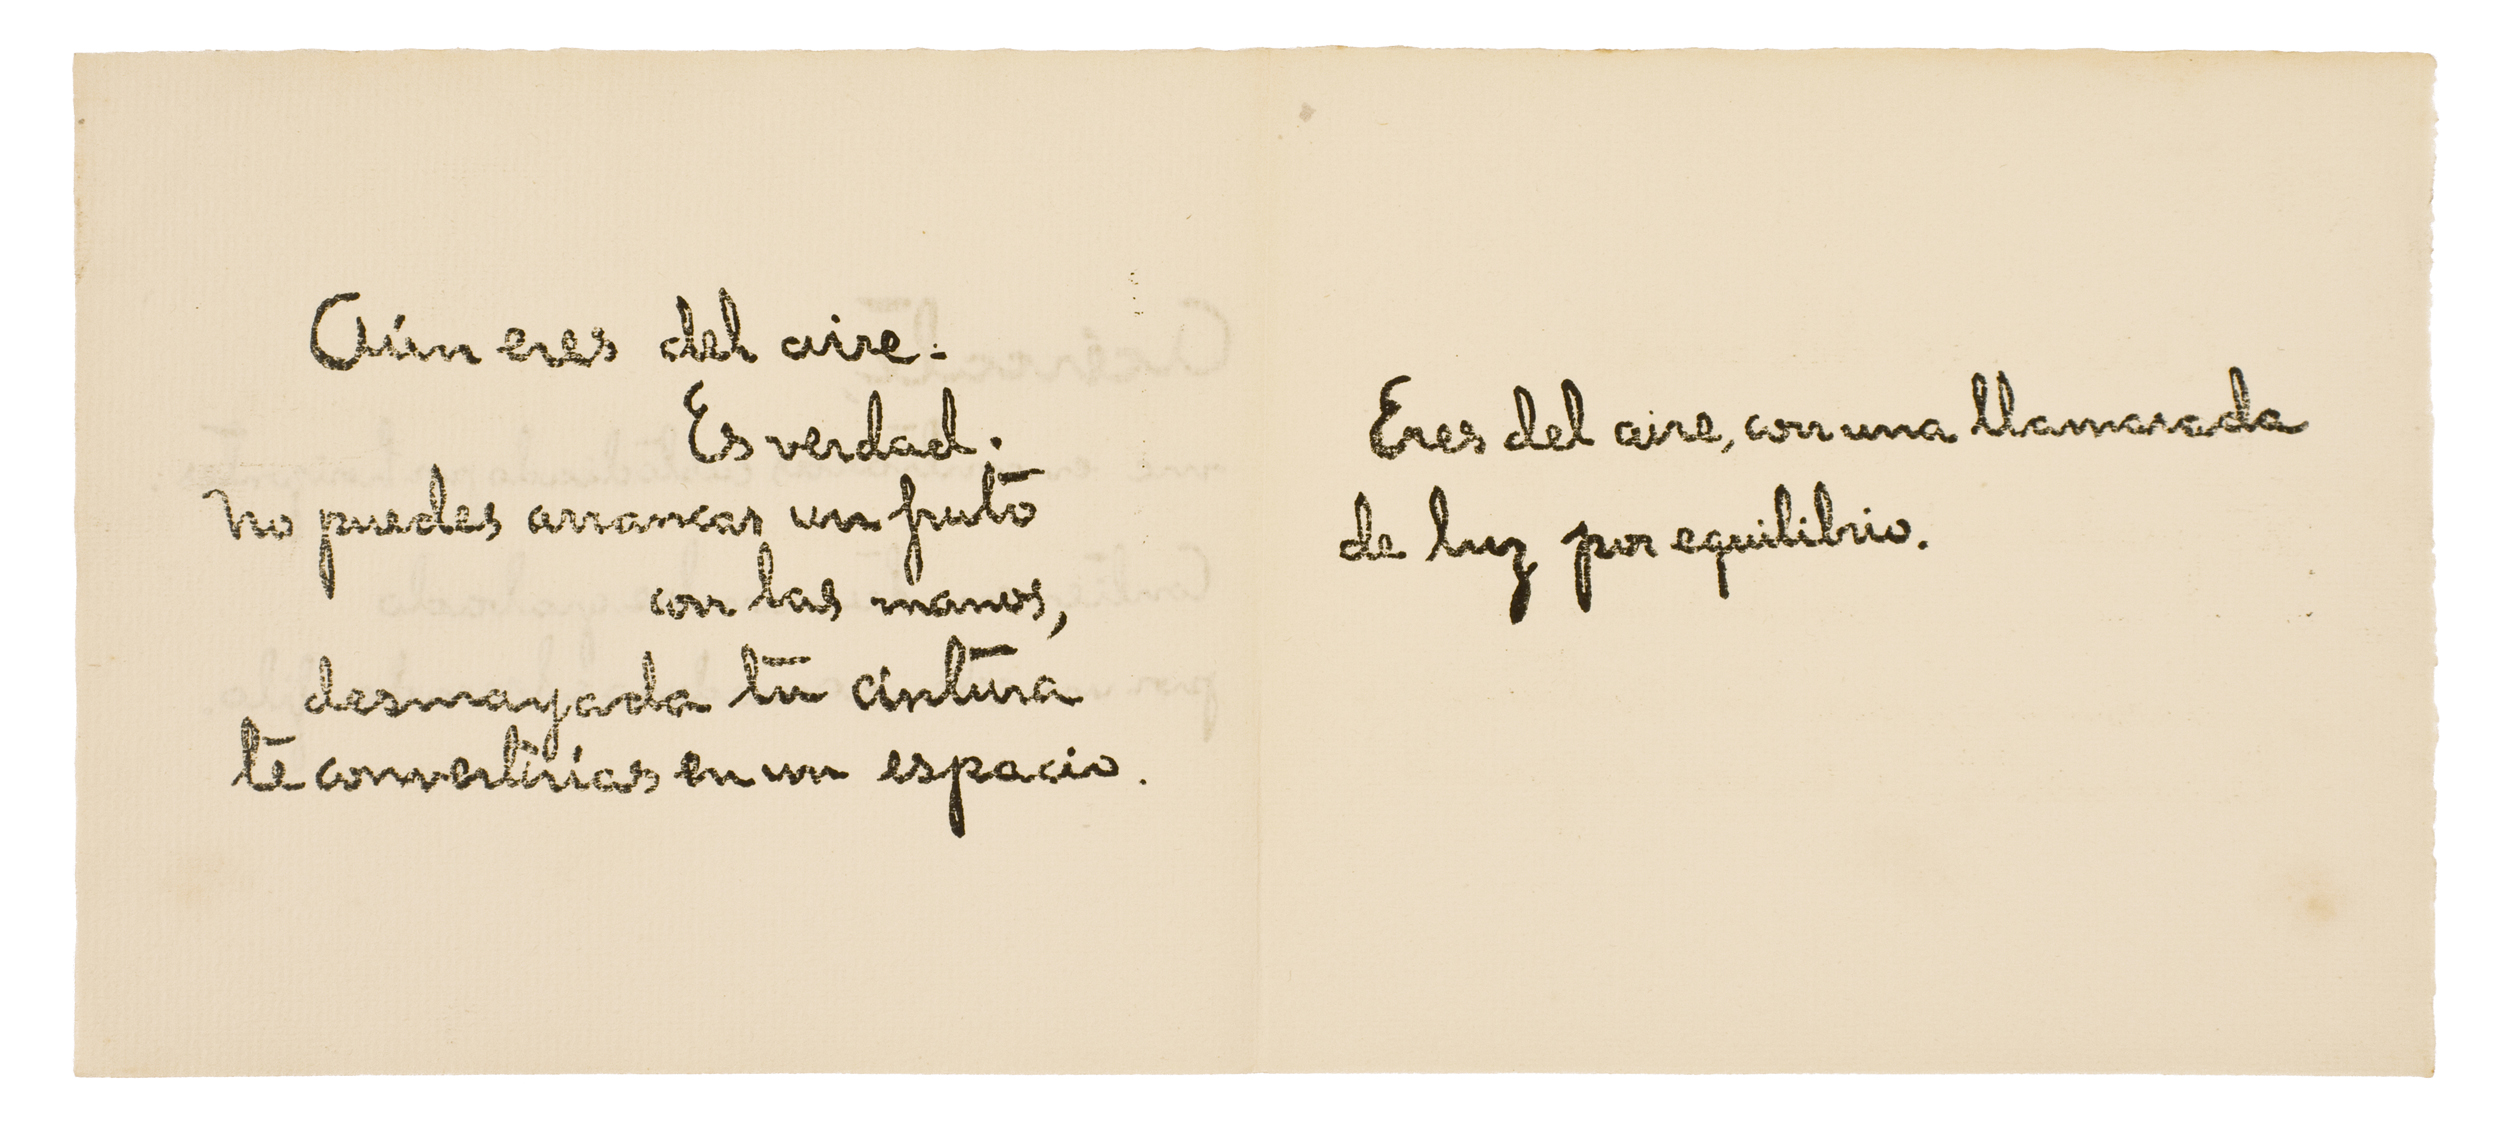 Aún eres del aire.
Es verdad.
No puedes arrancar un fruto
con las manos,
desmayada tu cintura
te convertirías en un espacio.
Eres del aire, con una llamarada
de luz por equilibrio.